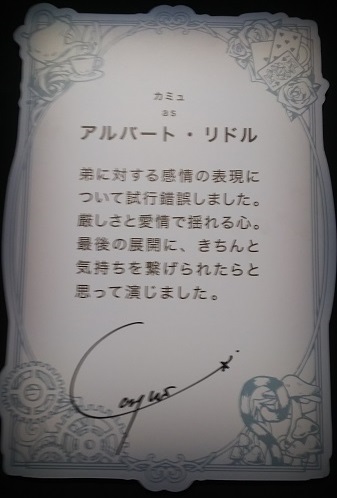 カミュ
as
アルバート・リドル
弟に対する感情の表現に
ついて試行錯誤しました。
厳しさと愛情で揺れる心。
最後の展開に、きちんと
気持ちを繋げられたらと
思って演じました。
Camus